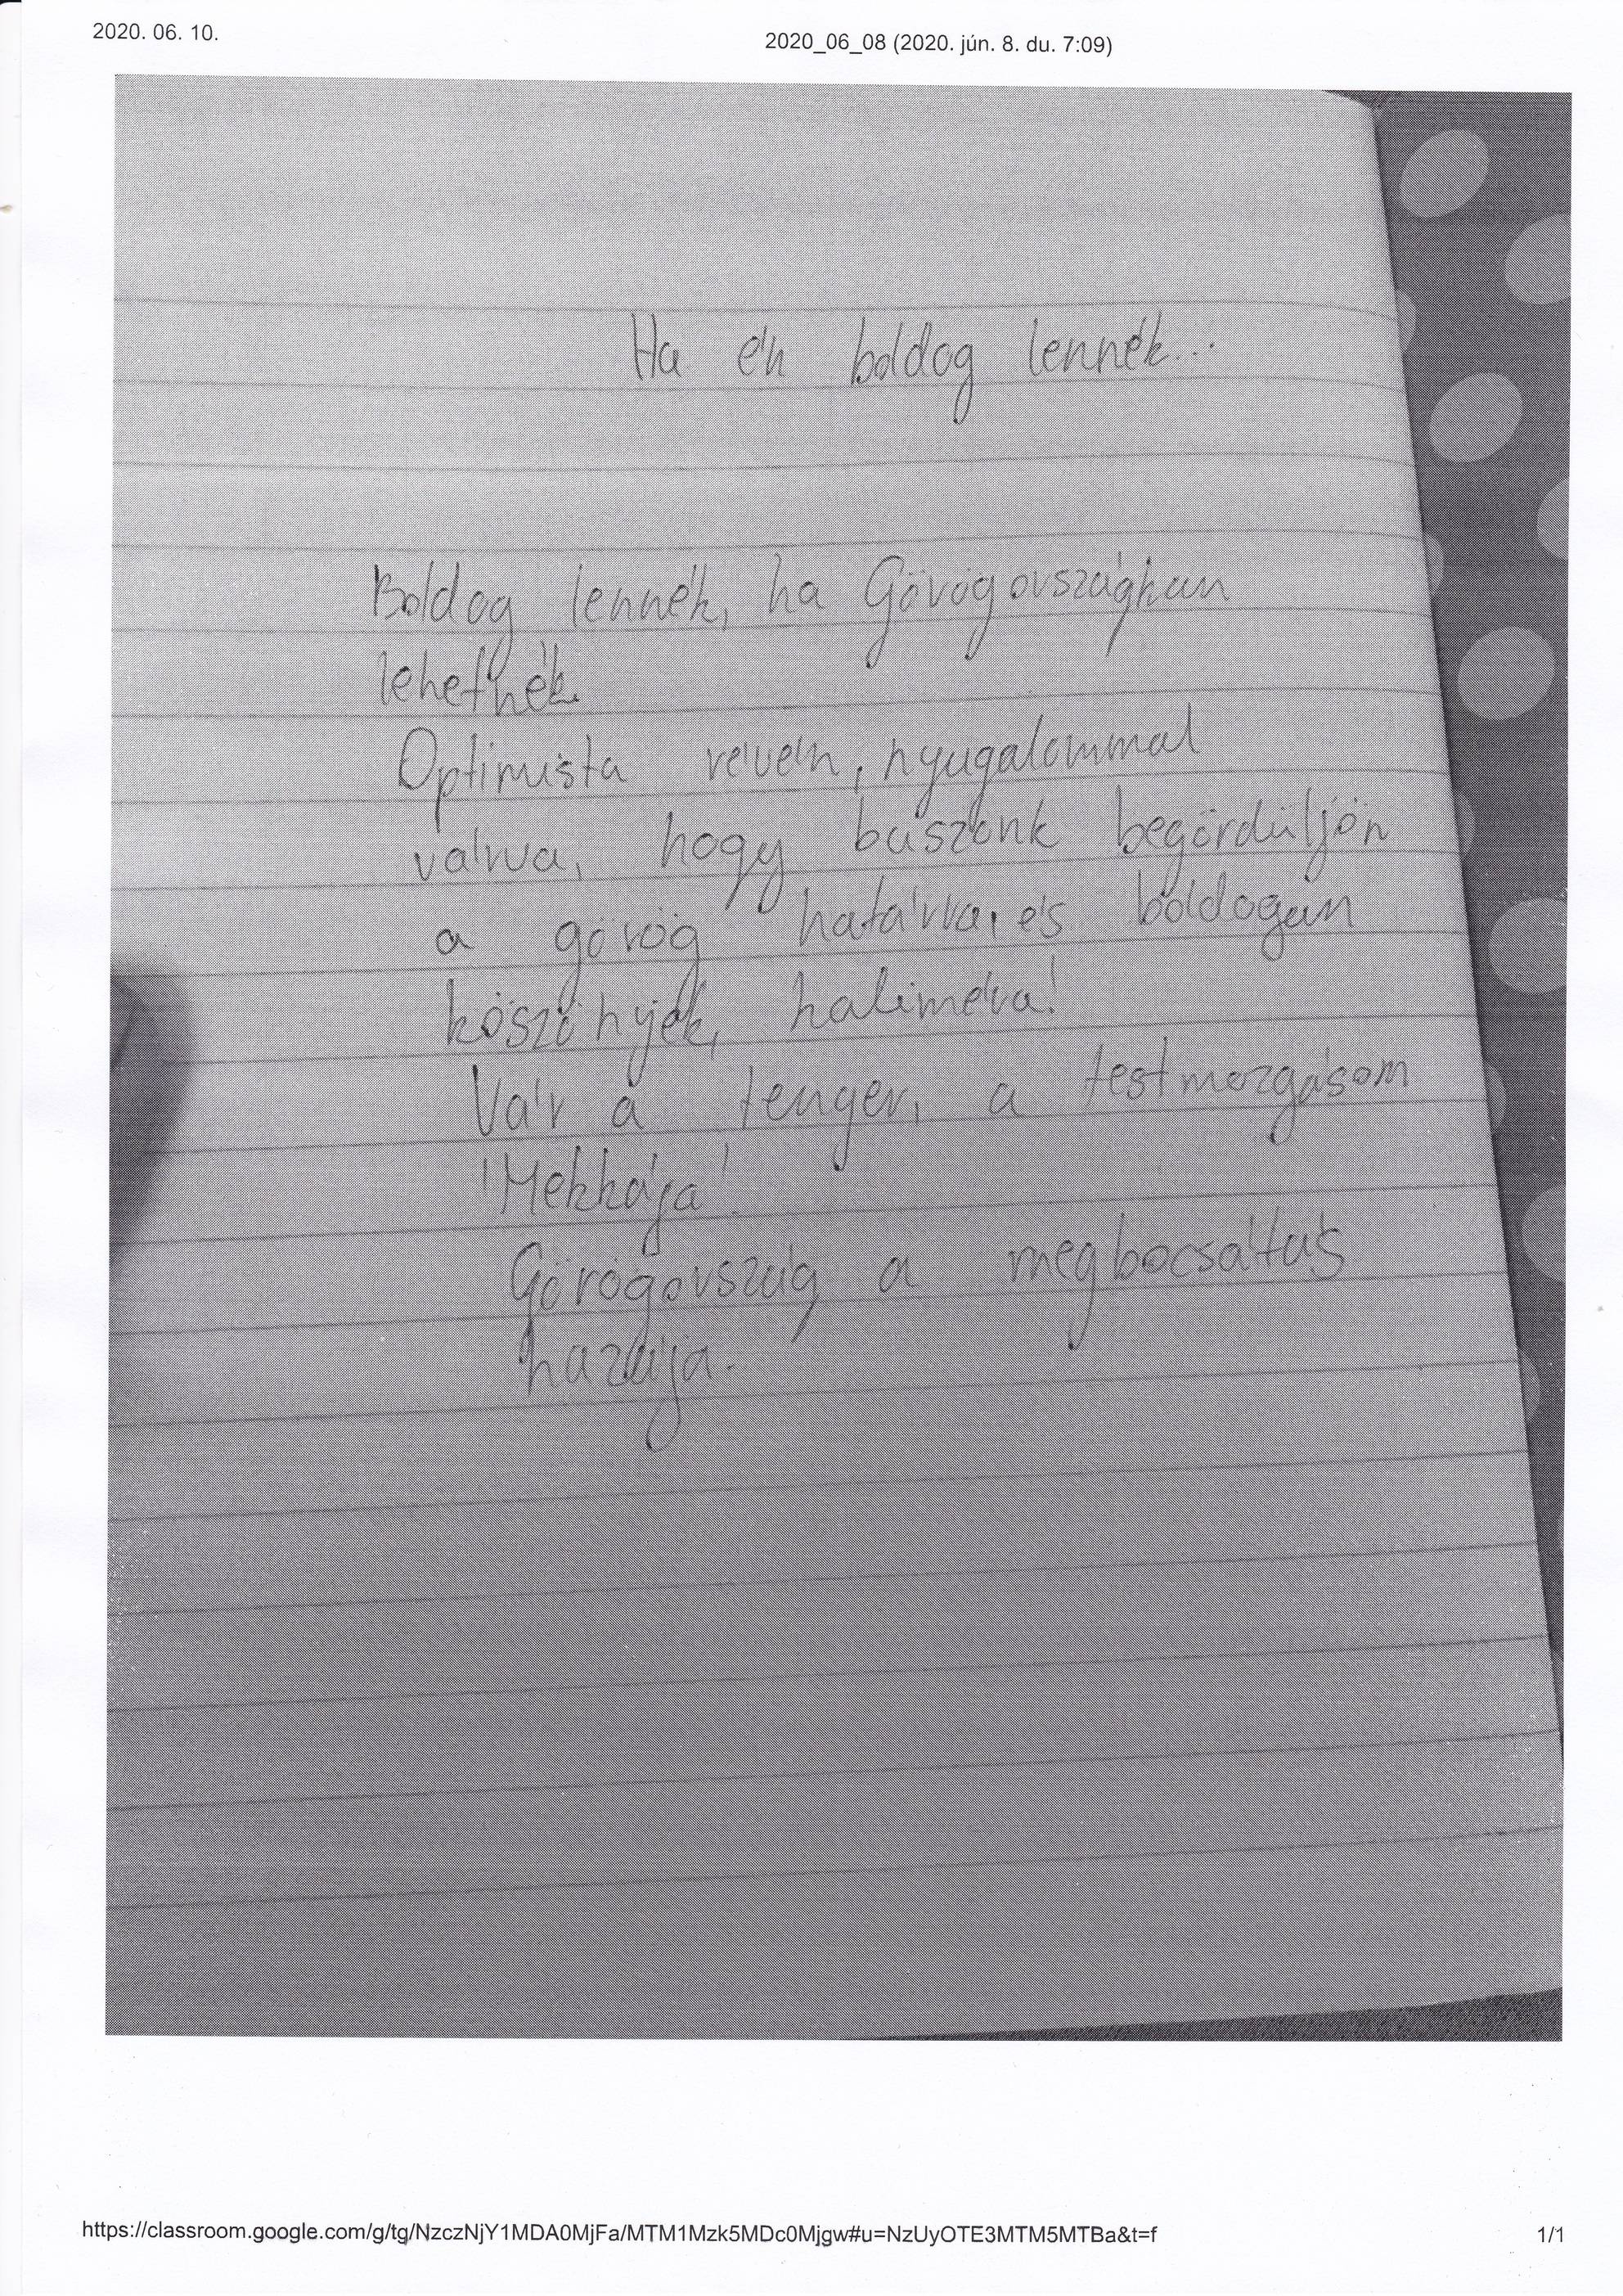 2020. 06. 10.
2020_06_08 (2020. jún. 8. du. 7:09)
Ha én boldog lennék...
Boldog lennék, ha Görögországban
lehetnék.
Optimista révén, nyugalommal
várva, hogy buszunk begördüljön
a görög határra, és boldogan
köszönjek, haliméra!
Vár a tenger, a testmozgásom
'Mekkája'.
Görögország a megbocsátás
hazája.
https://classroom.google.com/g/tg/NzczNjY1MDA0MjFa/MTM1Mzk5MDc0Mjgw#u=NzUyOTE3MTM5MTBa&t=f
1/1